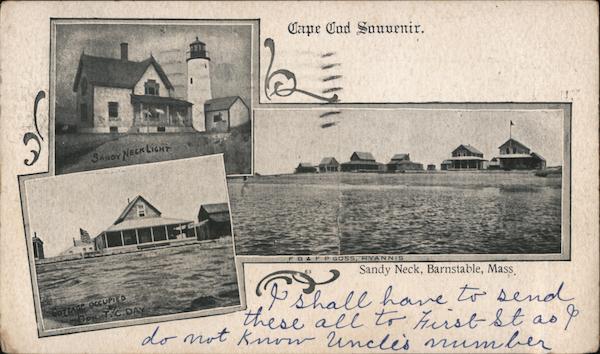 Cape Cod Souvenir.
SANDY NECK LIGHT
F B & F P GOSS, HYANNIS
Sandy Neck, Barnstable, Mass.
COTTAGE OCCUPIED
BY T. C. DAY
I shall have to send
these all to First St as I
do not know Uncle's number